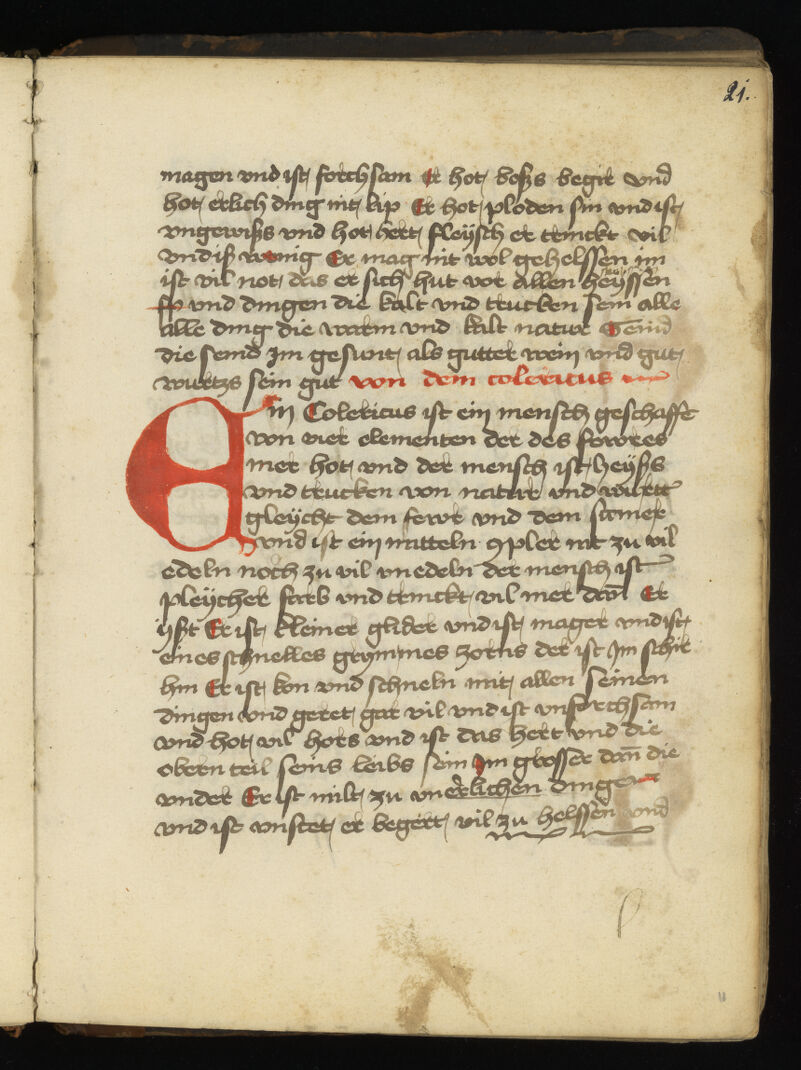 21.
magen vnd ist forchsam Er hot boßs begir vnd
hot erlich ding nit lip Er hot ploden sin vnd ist
vngewißs vnd hot hert fleÿsch er trinckt vil
vnd iß wenig Er mag nit wol gehelssen im
ist vil not das er sich hut vor allen heÿssen
vnd dingen die kalt vnd trucken sein alle
alle ding die warm vnd kalt natur Seind
die seind Im gesunt als gutter wein vnd gut
wurtzs sein gut von dem colericus
Ein Colericus ist ein mensch geschaffe
von vier elementen der des fewres
mer hot vnd der mensch ist heÿßs
vnd trucken von natur vnd wurtt
gleÿcht dem fewr vnd dem sumer
vnd ist ein mitteln 9pler nit zu vil
edeln noch zu vil vnedeln der mensch ist
pleÿcher farb vnd trinckt vil mer dan̄ Er
ÿßt Er ist kleiner glider vnd ist mager vnd ist
eines schnelles grymmes zorns der ist Im schir
hin Er ist kon vnd schneln mit allen seinen
dingen vnd geret gar vil vnd ist vnforchsam
vnd hot vil hors vnd ist das hert vnd die
obern teil seins leibs sein Im grosser dan̄ die
vnder Er ist milt zu vnerlichen dingen
vnd ist vnstet er begert vil zu helssen vnd